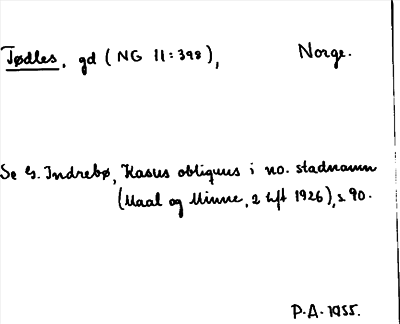 Tødles, gd (NG 11:398), Norge.
Se G. Indrebø, Kasus obliquus i no. stadnamn
(Maal og Minne, 2 hft 1926), s 90.
P.A. 1955.